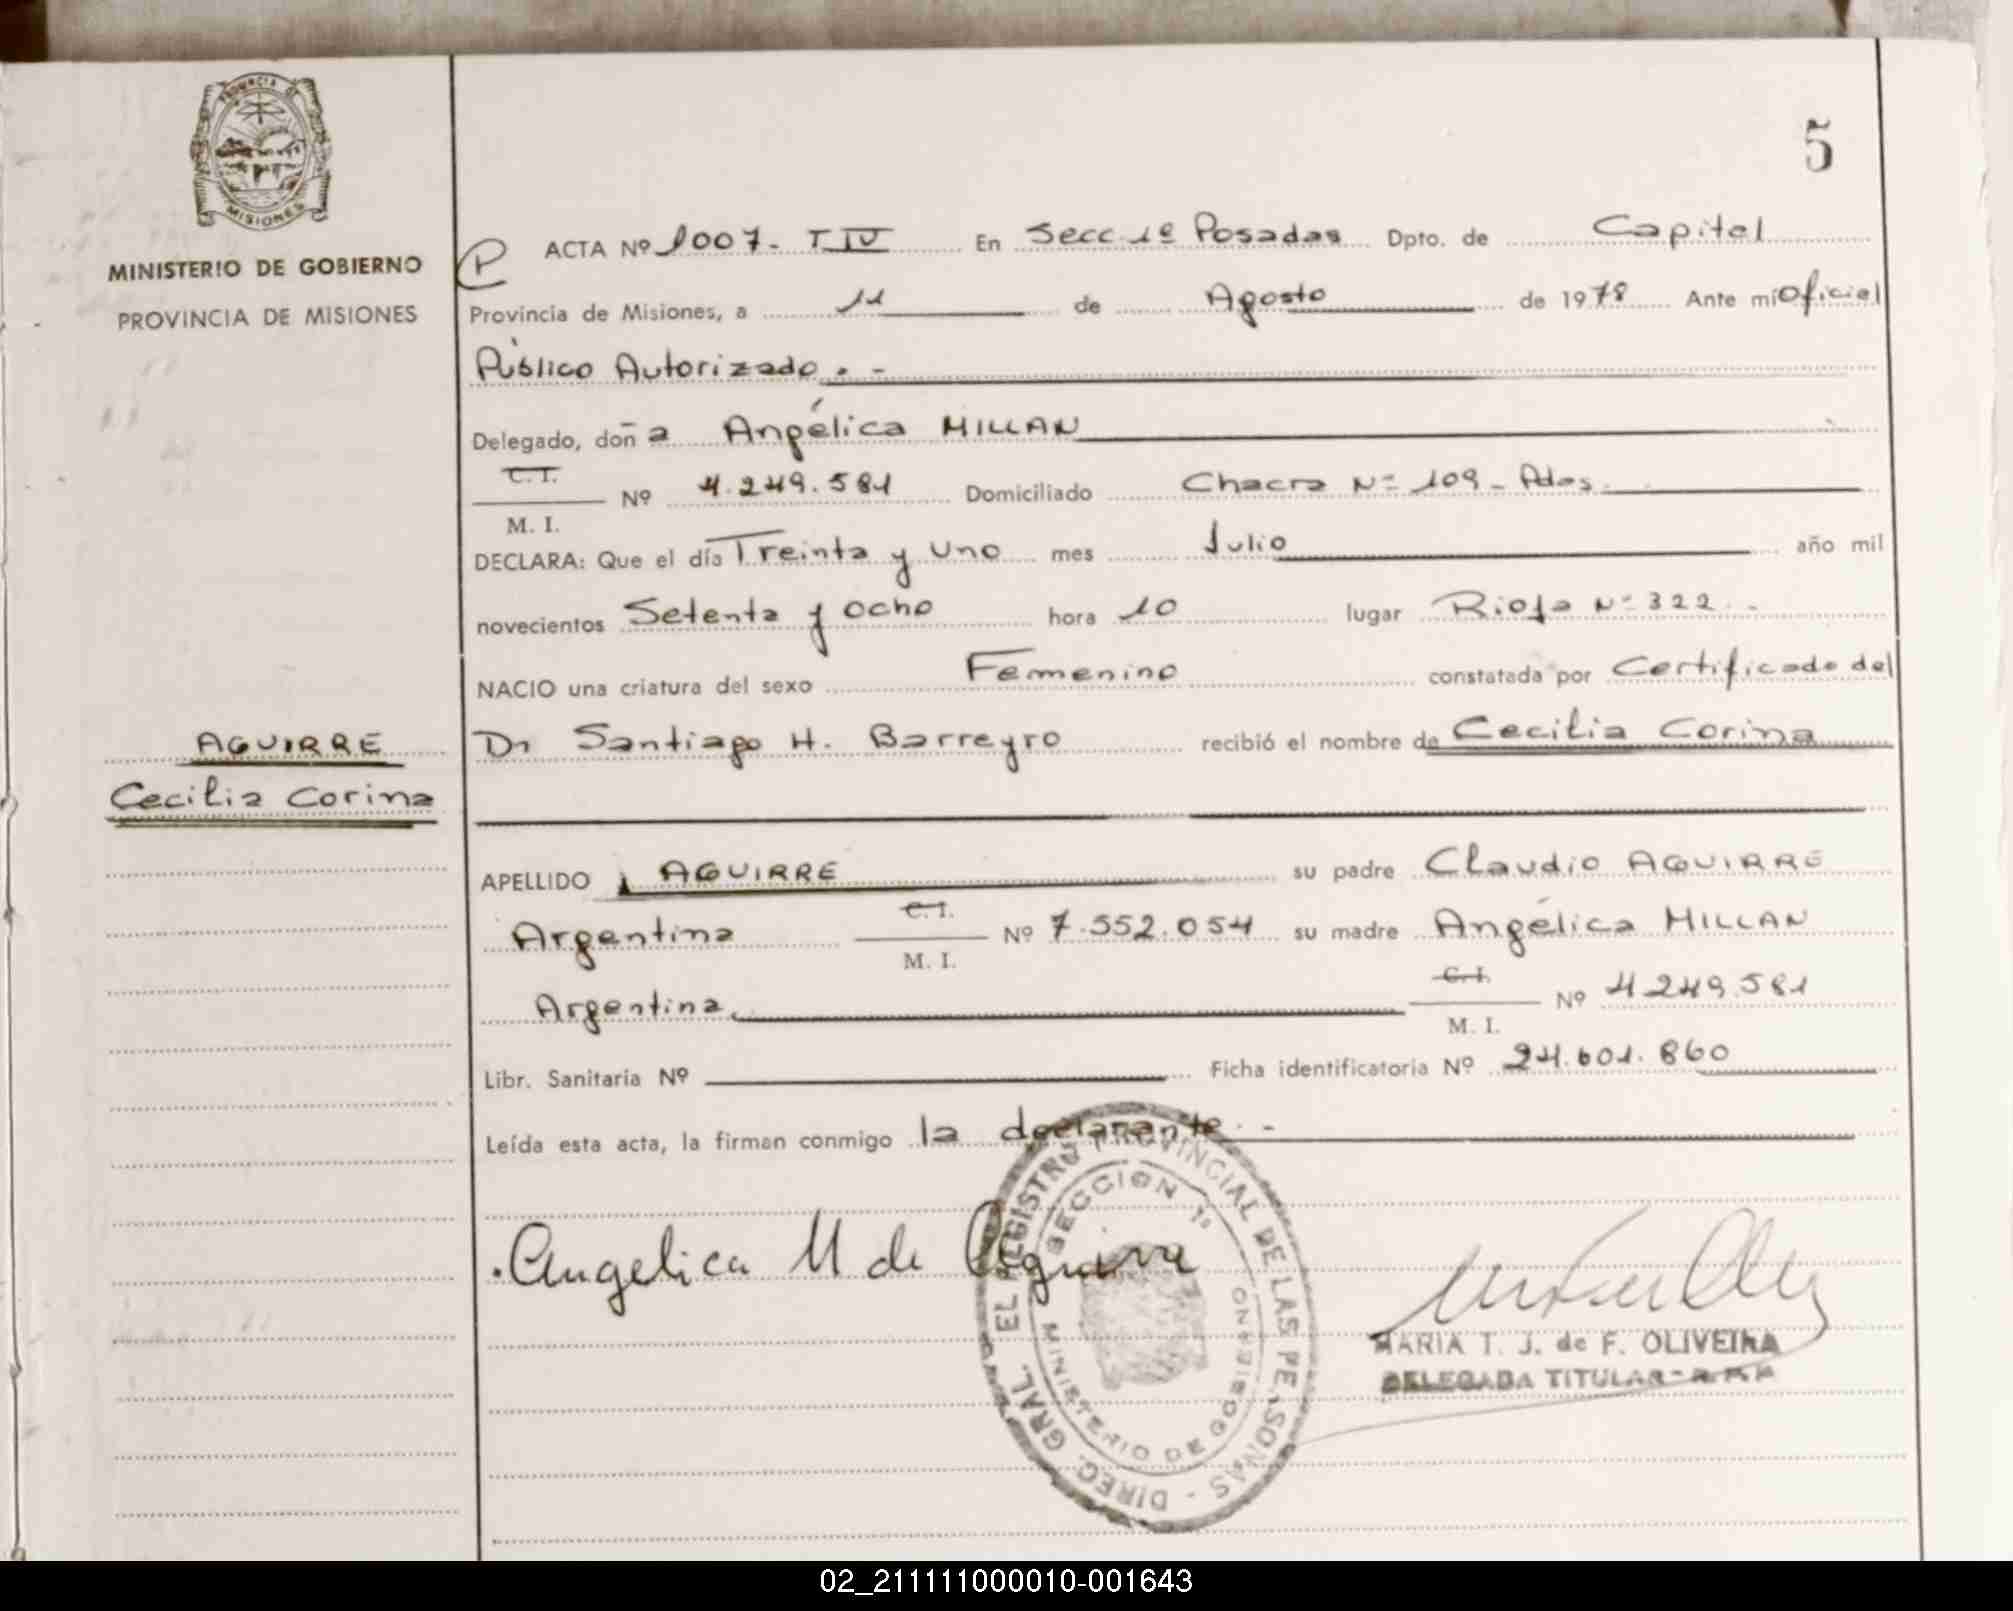 PROVINCIA DE
MISIONES
MINISTERIO DE GOBIERNO
PROVINCIA DE MISIONES
5
P ACTA Nº 1007. T IV En Secc 1º Posadas Dpto. de Capital
Provincia de Misiones, a 11 de Agosto de 1978 Ante mí Oficial
Público Autorizado. -
Delegado, doña Angélica MILLAN
C. I.
M. I.
Nº 4.249.581 Domiciliado Chacra Nº 109 - Pdas.
DECLARA: Que el día Treinta y Uno mes Julio año mil
novecientos Setenta y ocho hora 10 lugar Rioja Nº 322. -
NACIO una criatura del sexo Femenino constatada por Certificado del
AGUIRRE
Cecilia Corina
Dr Santiago H. Barreyro recibió el nombre de Cecilia Corina
APELLIDO AGUIRRE su padre Claudio AGUIRRE
Argentina C. I.
M. I.
Nº 7.552.054 su madre Angélica MILLAN
Argentina. C. I.
M. I.
Nº 4249.581
Libr. Sanitaria Nº Ficha identificatoria Nº 24.601.860
Leída esta acta, la firman conmigo la declarante. -
Angelica M de Aguirre
DIREC. GRAL. EL REGISTRO PROVINCIAL DE LAS PERSONAS -
SECCION 1ª
MINISTERIO DE GOBIERNO
MARIA T. J. de F. OLIVEIRA
DELEGADA TITULAR - R.P.P
02_211111000010-001643